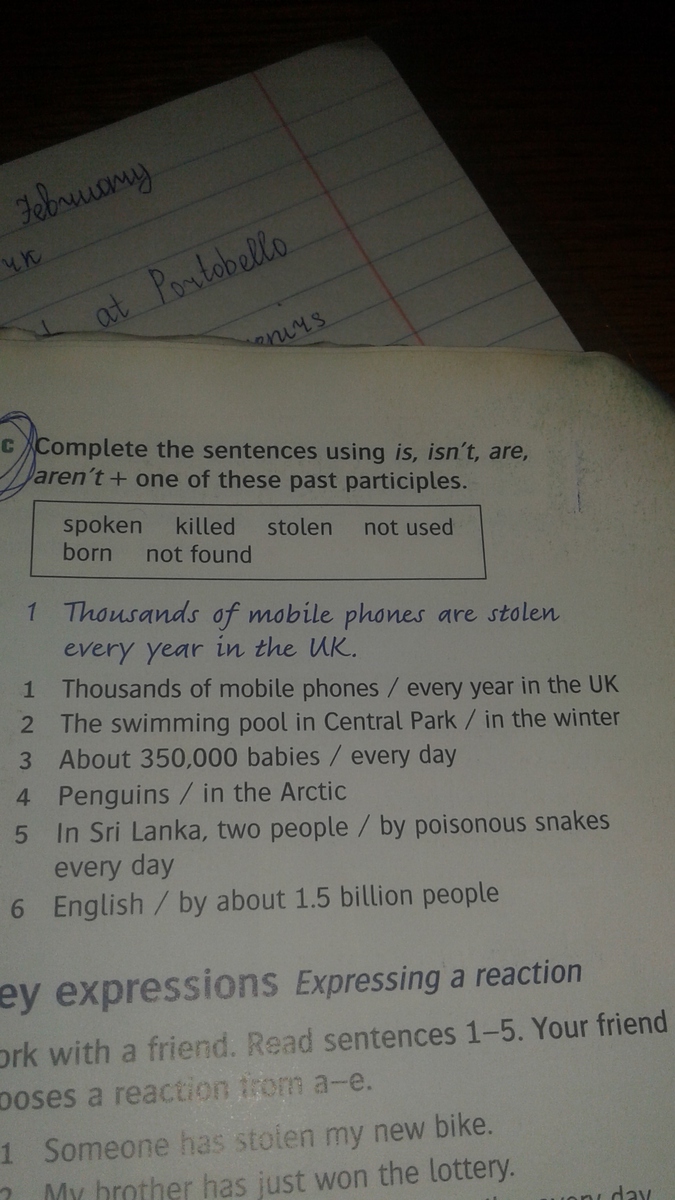 February
чк
at Portobello
c Complete the sentences using is, isn't, are,
aren't + one of these past participles.
spoken killed stolen not used
born not found
1 Thousands of mobile phones are stolen
every year in the UK.
1 Thousands of mobile phones / every year in the UK
2 The swimming pool in Central Park / in the winter
3 About 350,000 babies / every day
4 Penguins / in the Arctic
5 In Sri Lanka, two people / by poisonous snakes
every day
6 English / by about 1.5 billion people
ey expressions Expressing a reaction
ork with a friend. Read sentences 1–5. Your friend
ooses a reaction from a–e.
1 Someone has stolen my new bike.
2 My brother has just won the lottery.
every day